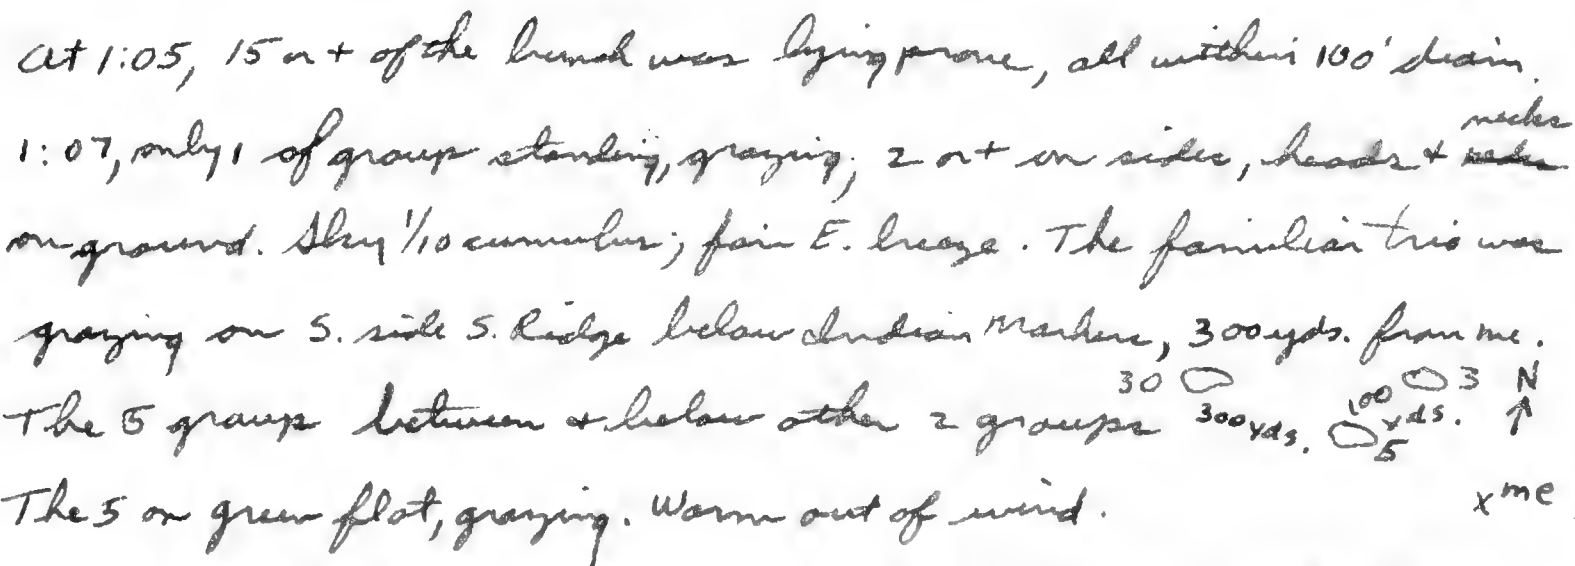 At 1:05, 15 or + of the bunch was lying prone, all within 100' diam.
1:07, only 1 of group standing, grazing; 2 or + on sides, heads + necks
on ground. Sky 1/10 cumulus; fair E. breeze. The familiar trio was
grazing on S. side S. Ridge below Indian Markers, 300 yds. from me.
30 3 N
The 5 group between & below other 2 groups 300 yds. 100 yds. 5
The 5 on green flat, grazing. Warm out of wind. x me